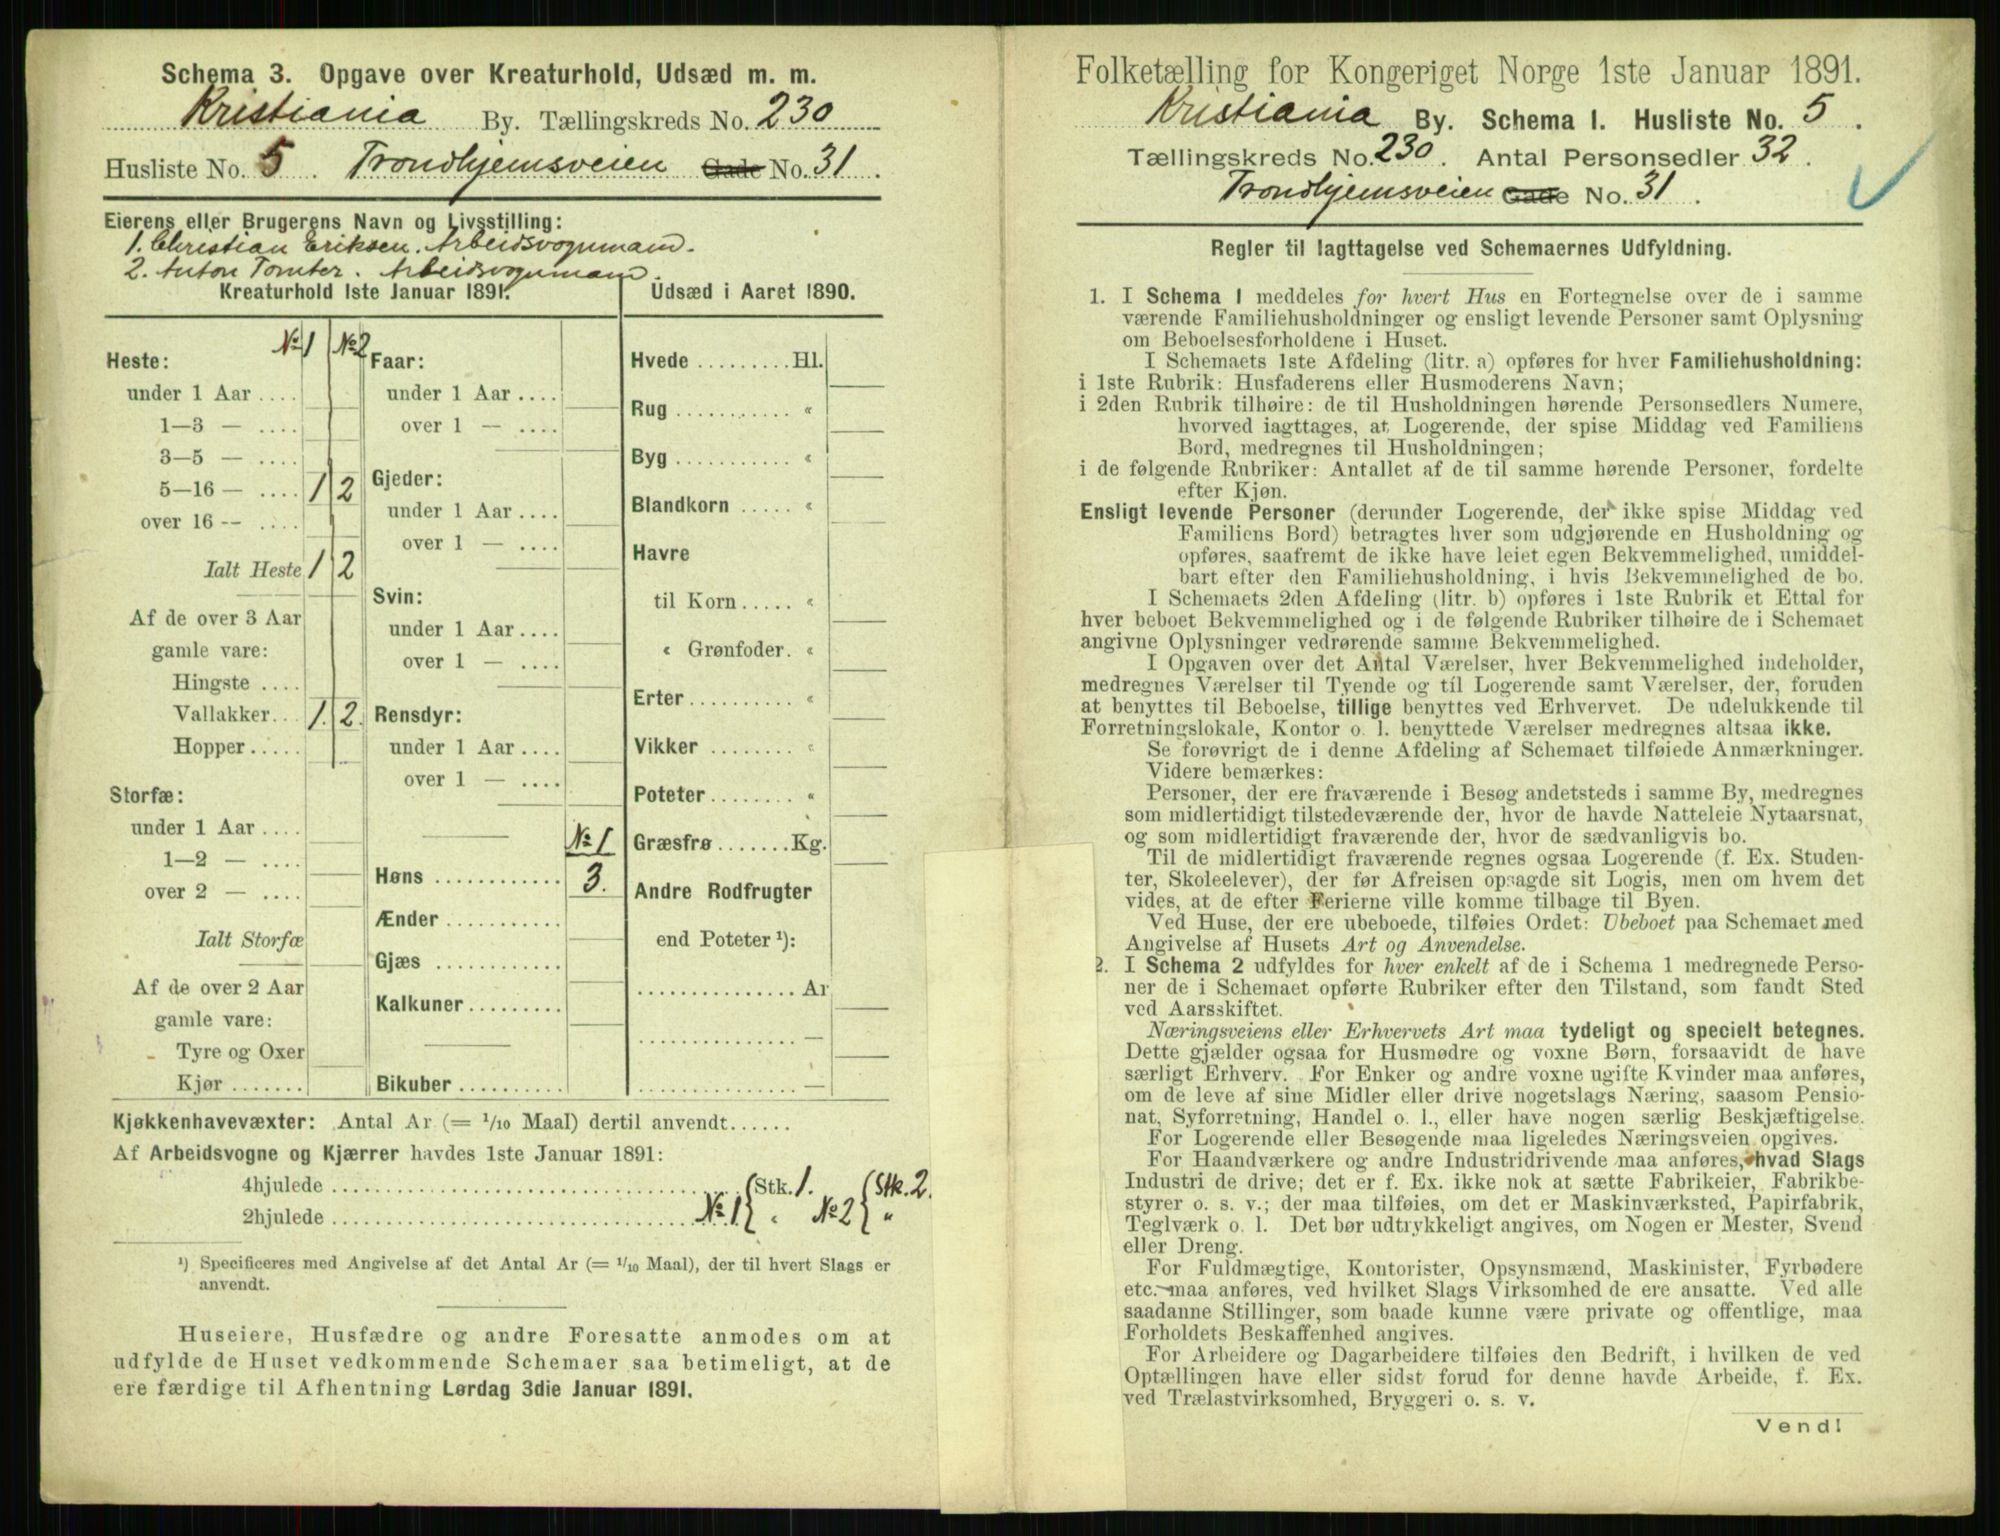 Schema 3. Opgave over Kreaturhold, Udsæd m. m.
Kristiania By. Tællingskreds No. 230
Husliste No. 5. Trondhjemsveien Gade No. 31.
Eierens eller Brugerens Navn og Livsstilling:
1. Christian Eriksen. Arbeidsvognmand.
2. Anton Tomter. Arbeidsvognmand.
Kreaturhold 1ste Januar 1891.
No 1 No 2
Heste:
under 1 Aar ....
1—3 — ....
3—5 — ....
5—16 — .... 1 2
over 16 -- ....
Ialt Heste 1 2
Af de over 3 Aar
gamle vare:
Hingste ....
Vallakker... 1. 2.
Hopper.....
Storfæ:
under 1 Aar ....
1—2 — ....
over 2 — ....
Ialt Storfæ
Af de over 2 Aar
gamle vare:
Tyre og Oxer
Kjør .......
Faar:
under 1 Aar ....
over 1 — ....
Gjeder:
under 1 Aar ....
over 1 — ....
Svin:
under 1 Aar ....
over 1 — ....
Rensdyr:
under 1 Aar ....
over 1 — ....
No 1
Høns ............ 3.
Ænder ...........
Gjæs ............
Kalkuner.........
Bikuber ..........
Udsæd i Aaret 1890.
Hvede .........Hl.
Rug ........... «
Byg ........... «
Blandkorn ..... «
Havre
til Korn..... «
« Grønfoder. «
Erter.......... «
Vikker ........ «
Poteter........ «
Græsfrø .......Kg.
Andre Rodfrugter
end Poteter ¹):
................ Ar
................ —
................ —
Kjøkkenhavevæxter: Antal Ar (= 1/10 Maal) dertil anvendt......
Af Arbeidsvogne og Kjærrer havdes 1ste Januar 1891:
4hjulede ........................................ Stk. 1. Stk. 2.
2hjulede ........................................ No 1 { « No 2 { «
¹) Specificeres med Angivelse af det Antal Ar (= 1/10 Maal), der til hvert Slags er
anvendt.
Huseiere, Husfædre og andre Foresatte anmodes om at
udfylde de Huset vedkommende Schemaer saa betimeligt, at de
ere færdige til Afhentning Lørdag 3die Januar 1891.
Folketælling for Kongeriget Norge 1ste Januar 1891.
Kristiania By. Schema I. Husliste No. 5.
Tællingskreds No. 230. Antal Personsedler 32.
Trondhjemsveien Gade No. 31.
Regler til Iagttagelse ved Schemaernes Udfyldning.
1. I Schema 1 meddeles for hvert Hus en Fortegnelse over de i samme
værende Familiehusholdninger og ensligt levende Personer samt Oplysning
om Beboelsesforholdene i Huset.
I Schemaets 1ste Afdeling (litr. a) opføres for hver Familiehusholdning:
i 1ste Rubrik: Husfaderens eller Husmoderens Navn;
i 2den Rubrik tilhøire: de til Husholdningen hørende Personsedlers Numere,
hvorved iagttages, at Logerende, der spise Middag ved Familiens
Bord, medregnes til Husholdningen;
i de følgende Rubriker: Antallet af de til samme hørende Personer, fordelte
efter Kjøn.
Ensligt levende Personer (derunder Logerende, der ikke spise Middag ved
Familiens Bord) betragtes hver som udgjørende en Husholdning og
opføres, saafremt de ikke have leiet egen Bekvemmelighed, umiddel-
bart efter den Familiehusholdning, i hvis Bekvemmelighed de bo.
I Schemaets 2den Afdeling (litr. b) opføres i 1ste Rubrik et Ettal for
hver beboet Bekvemmelighed og i de følgende Rubriker tilhøire de i Schemaet
angivne Oplysninger vedrørende samme Bekvemmelighed.
I Opgaven over det Antal Værelser, hver Bekvemmelighed indeholder,
medregnes Værelser til Tyende og til Logerende samt Værelser, der, foruden
at benyttes til Beboelse, tillige benyttes ved Erhvervet. De udelukkende til
Forretningslokale, Kontor o. l. benyttede Værelser medregnes altsaa ikke.
Se forøvrigt de i denne Afdeling af Schemaet tilføiede Anmærkninger.
Videre bemærkes:
Personer, der ere fraværende i Besøg andetsteds i samme By, medregnes
som midlertidigt tilstedeværende der, hvor de havde Natteleie Nytaarsnat,
og som midlertidigt fraværende der, hvor de sædvanligvis bo.
Til de midlertidigt fraværende regnes ogsaa Logerende (f. Ex. Studen-
ter, Skoleelever), der før Afreisen opsagde sit Logis, men om hvem det
vides, at de efter Ferierne ville komme tilbage til Byen.
Ved Huse, der ere ubeboede, tilføies Ordet: Ubeboet paa Schemaet med
Angivelse af Husets Art og Anvendelse.
2. I Schema 2 udfyldes for hver enkelt af de i Schema 1 medregnede Perso-
ner de i Schemaet opførte Rubriker efter den Tilstand, som fandt Sted
ved Aarsskiftet.
Næringsveiens eller Erhvervets Art maa tydeligt og specielt betegnes.
Dette gjælder ogsaa for Husmødre og voxne Børn, forsaavidt de have
særligt Erhverv. For Enker og andre voxne ugifte Kvinder maa anføres,
om de leve af sine Midler eller drive nogetslags Næring, saasom Pensio-
nat, Syforretning, Handel o. l., eller have nogen særlig Beskjæftigelse.
For Logerende eller Besøgende maa ligeledes Næringsveien opgives.
For Haandværkere og andre Industridrivende maa anføres, hvad Slags
Industri de drive; det er f. Ex. ikke nok at sætte Fabrikeier, Fabrikbe-
styrer o. s. v.; der maa tilføies, om det er Maskinværksted, Papirfabrik,
Teglværk o. l. Det bør udtrykkeligt angives, om Nogen er Mester, Svend
eller Dreng.
For Fuldmægtige, Kontorister, Opsynsmænd, Maskinister, Fyrbødere
etc. maa anføres, ved hvilket Slags Virksomhed de ere ansatte. Ved alle
saadanne Stillinger, som baade kunne være private og offentlige, maa
Forholdets Beskaffenhed angives.
For Arbeidere og Dagarbeidere tilføies den Bedrift, i hvilken de ved
Optællingen have eller sidst forud for denne havde Arbeide, f. Ex.
ved Trælastvirksomhed, Bryggeri o. s. v.
Vend!